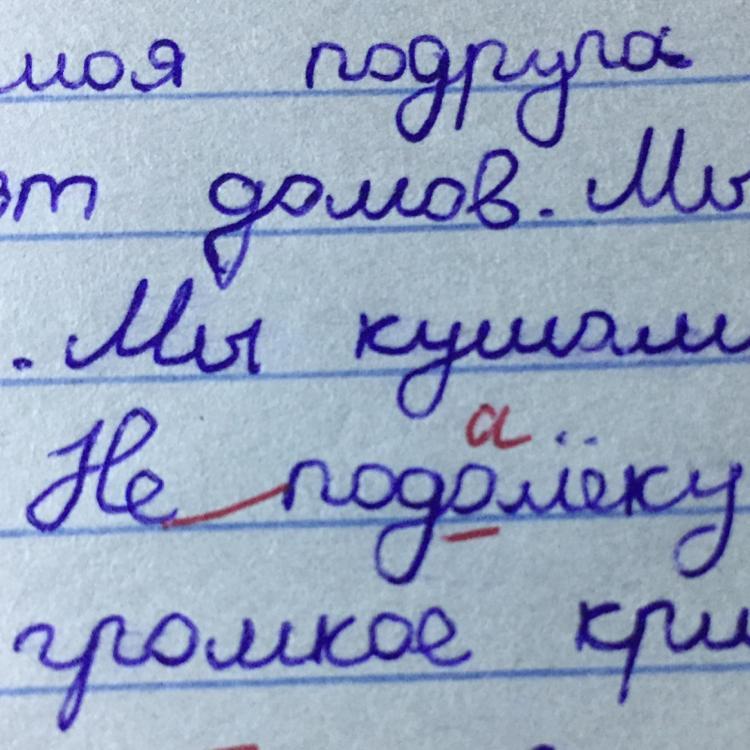 моя подруга
эт домов. Мы
. Мы кушали
а
Не подолёку
громкое кри